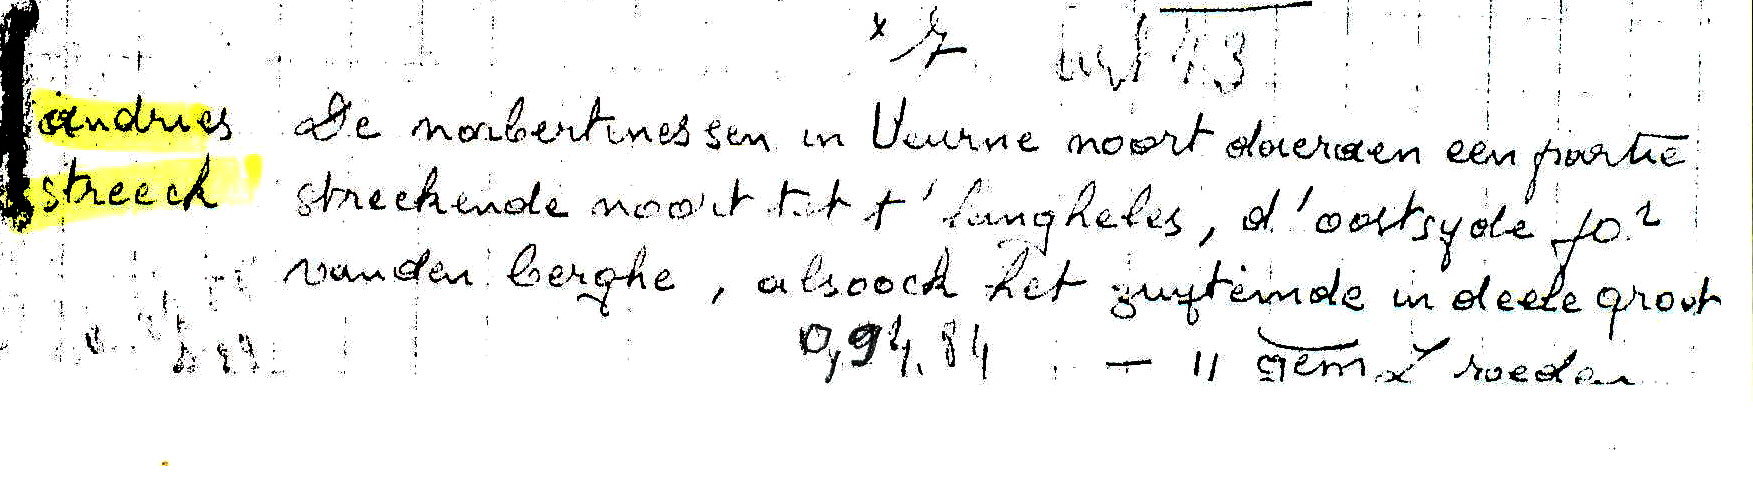 x 7 uyt 43
andries De norbertinessen in Veurne noort daeraen een partie
streeck streckende noort tot t' langheles, d'oostzyde jo²
vanden berghe, alsoock het zuyteinde in deele groot
0,94.84 . — 11 gem L roeden